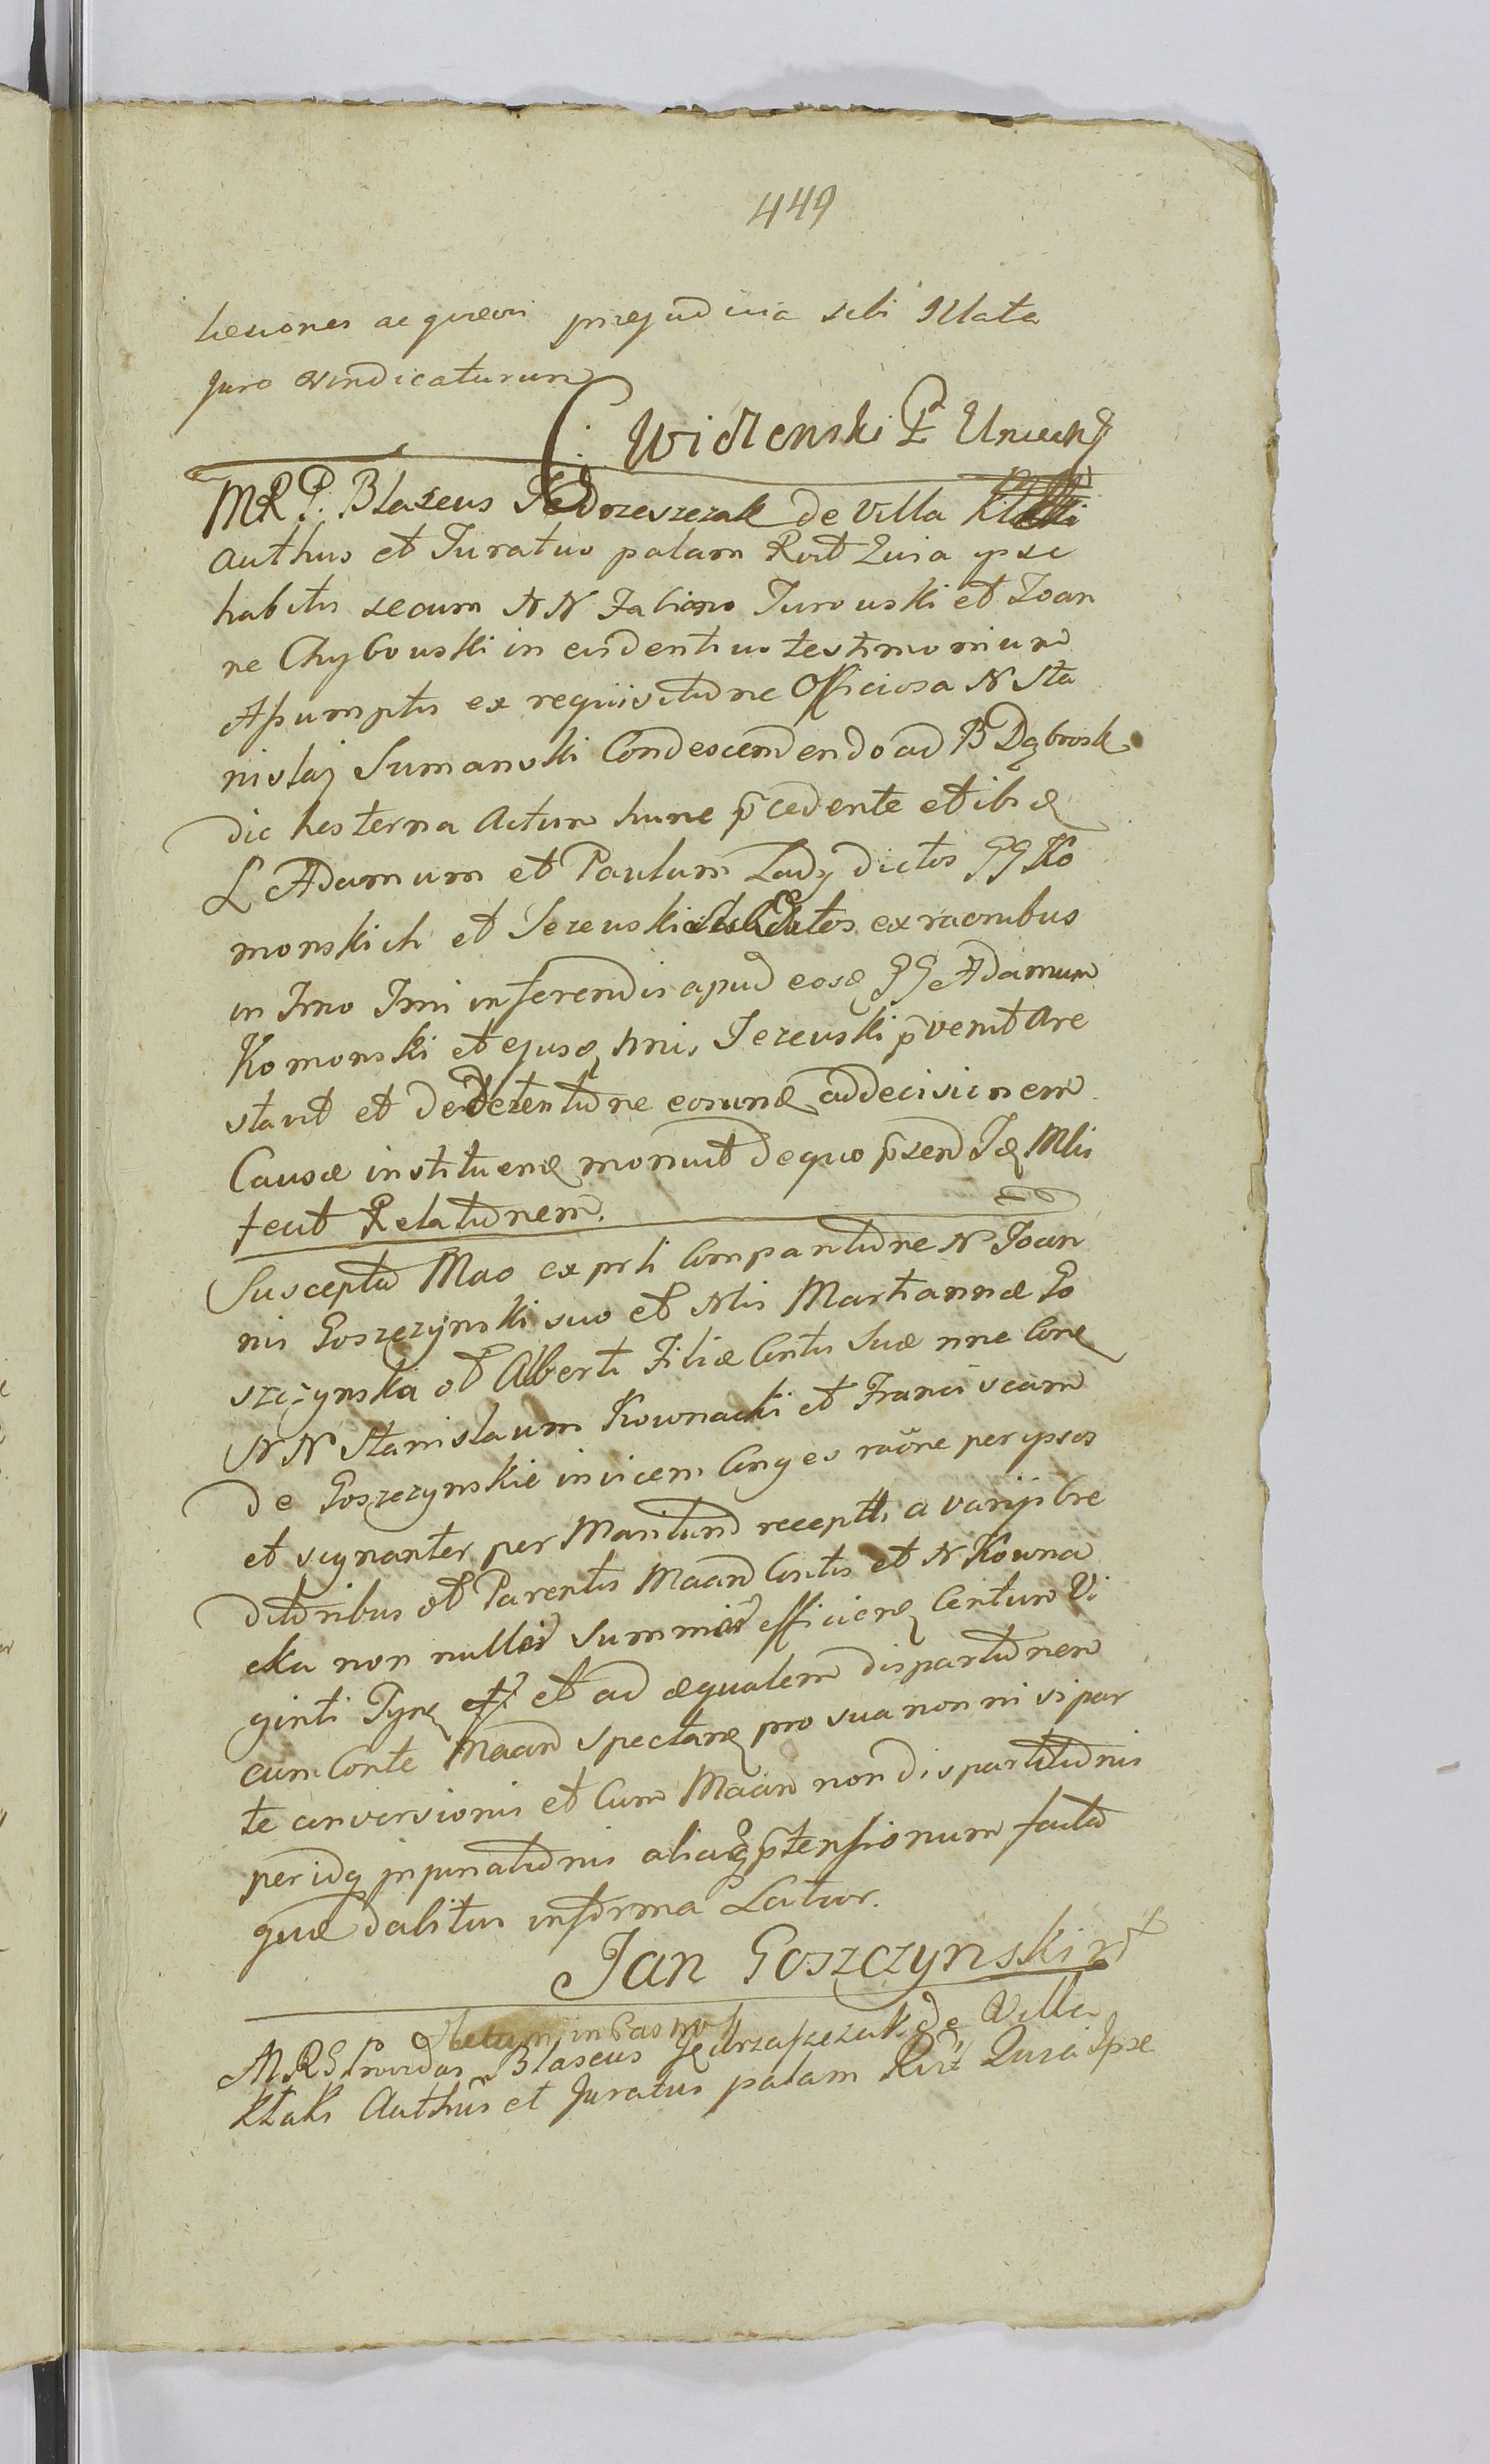 449
lesiones ac quævis præjudicia sibi Illata
Jure vindicaturum
Widlenski
MRP. Blaseus Jedrzeszczak de Villa
Authus et Juratus palam Rect Quia ipse
habitis secum NN Fabiano Turouski et Joan
ne Chybouski in evidentius testimonium
Assumptis ex requisitione Officiosa N Sta
nislaj Sumanski Condescendendo ad B Dąbrosk
die hesterna Actum hunc p̄cedente et ibiꝺ
L Adamum et Paulum Lady dictos GG Ko
monskich et Jezeuski ex raonibus
in Imo Imi inferendis apud eosꝺ GG Adamum
Komonski et ejusꝺ nnis Jezeuski p̄venit Are
stavit et de detentione eorunꝺ ad decisionem
Causæ instituenꝺ monuit de quo p̄send Jꝺ Mlis
fecit Relationem.
Suscepto Mao ex prti Compantione N Joan
nis Goszczynski suo et Nlis Martiannæ Go
szczynska ol Alberti Filiæ Contis Suæ nne Conꝺ
NN Stanislaum Kownacki et Franciscam
de Goszczynskie invicem Conges raone per ipsos
et signanter per Maritum receptti a varijs Cre
ditoribus ol Parentis Maand Contis et N Kowna
cka non nullas Summas efficienꝺ Centum Vi
ginti Tynꝺ et ad æqualem dispartionem
cum Conte Maand spectanꝺ pro sua non nisi par
te conversionis et Cum Maan non dispartitionis
per idq injunationis aliarꝙ p̄tensionum facto
quæ dabitur in forma Latior.
Jan Goszczynski
Actum in Crasno
MRS Providus Blaseus Jędrzaszczak de Villa
Kłaki Authus et Juratus palam Rect Quia Ipse